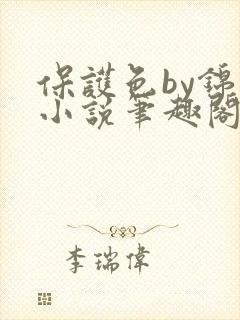 保護色by錦
小說筆趣閣
李瑞偉